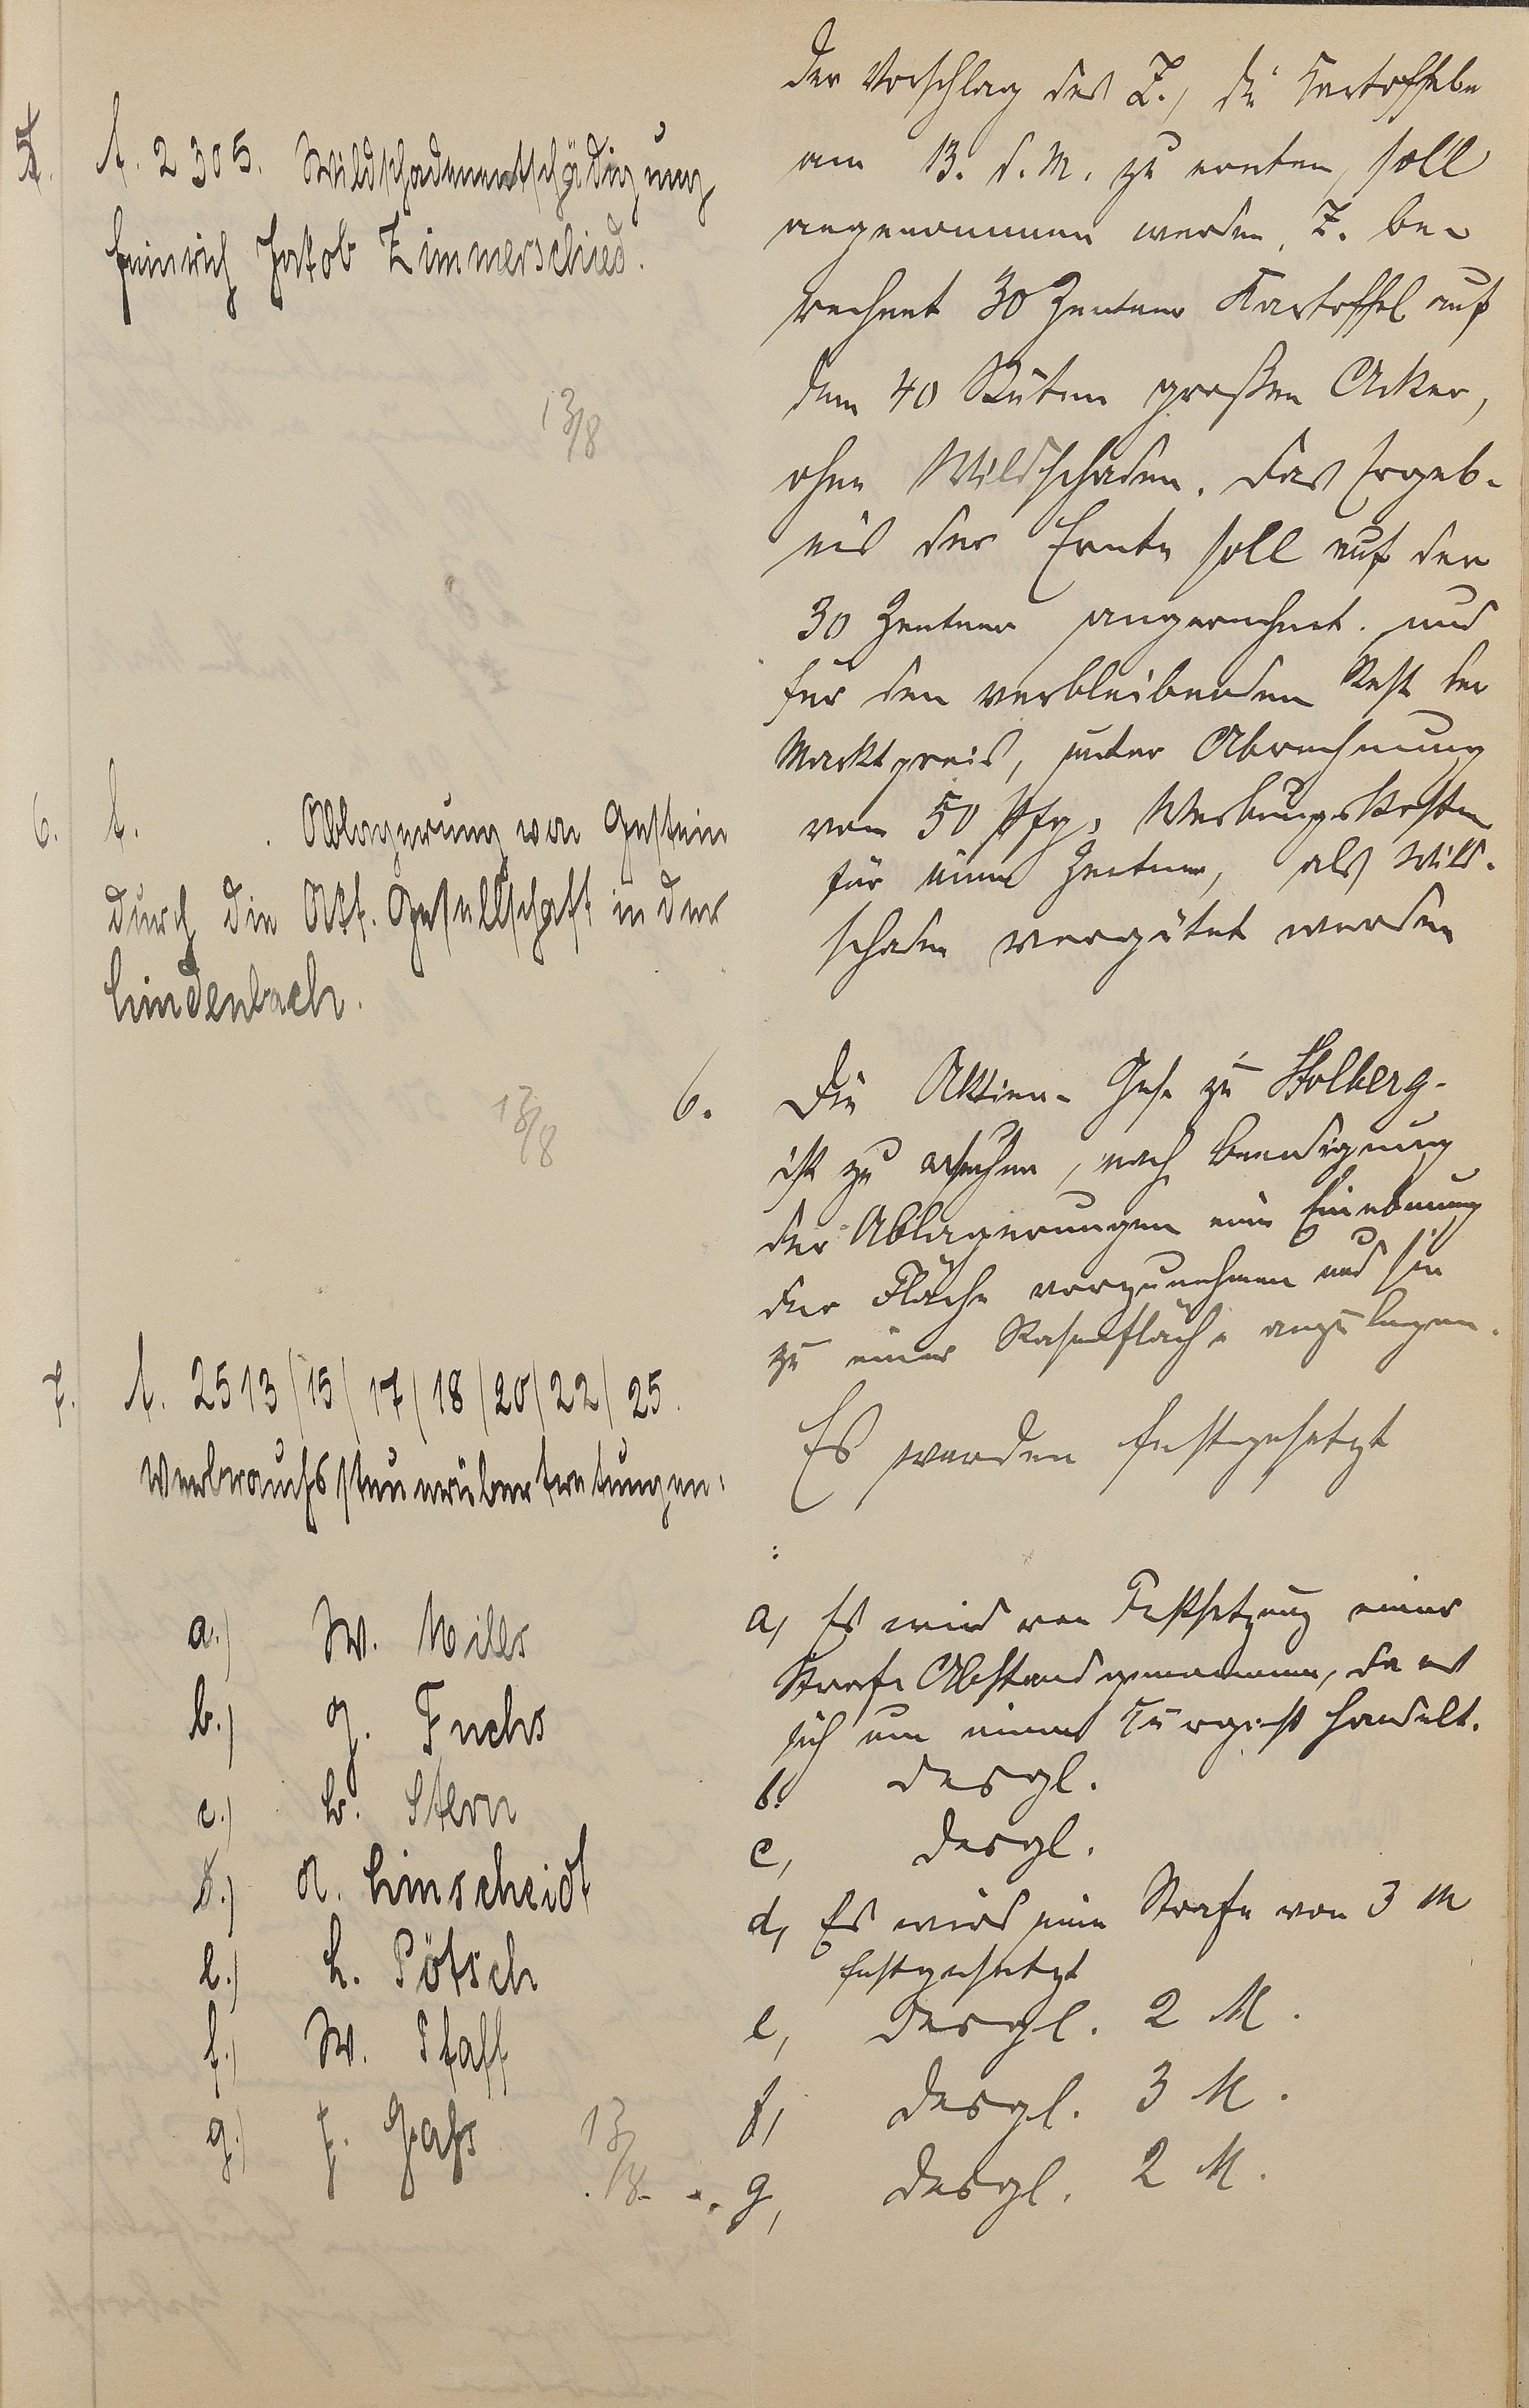 5. A. 2305. Wildschadenentschädigung
Heinrich Jakob Zimmerschied.
13/8
Der Vorschlag des Z., die Kartoffeln
am 13. d. M. zu ernten, soll
angenommen werden. Z. be-
rechnet 30 Zentner Kartoffel auf
dem 40 Ruten großen Acker,
ohne Wildschaden. Das Ergeb-
nis der Ernte soll auf den
30 Zentner angerechnet und
für den verbleibenden Rest der
Marktpreis, unter Abrechnung
von 50 Pfg. Werbungskosten
für einen Zentner, als Wild-
schaden vergütet werden
6. A. . Ablagerung von Gestein
durch die Akt. Gesellschaft in der
Lindenbach.
13/8
6. Die Aktien-Ges. zu Stolberg
ist zu ersuchen, nach Beendigung
der Ablagerungen eine Einebnung
der Fläche vorzunehmen und sie
zu einer Rasenfläche anzulegen.
7. A. 2513/15/17/18/20/22/25.
Verbrauchssteuerübertretungen:
Es werden festgesetzt
:
a.) W. Hiller
b.) J. Fuchs
c.) L. Stern
d.) A. Linscheidt
e.) H. Pötsch
f.) W. Pfaff
g.) F. Gass
13/8
a, Es wird von Festsetzung einer
Strafe Abstand genommen, da es
sich um einen Kurgast handelt.
b. desgl.
c, desgl.
d, Es wird eine Strafe von 3 M
festgesetzt
e, desgl. 2 M.
f, desgl. 3 M.
g, desgl. 2 M.